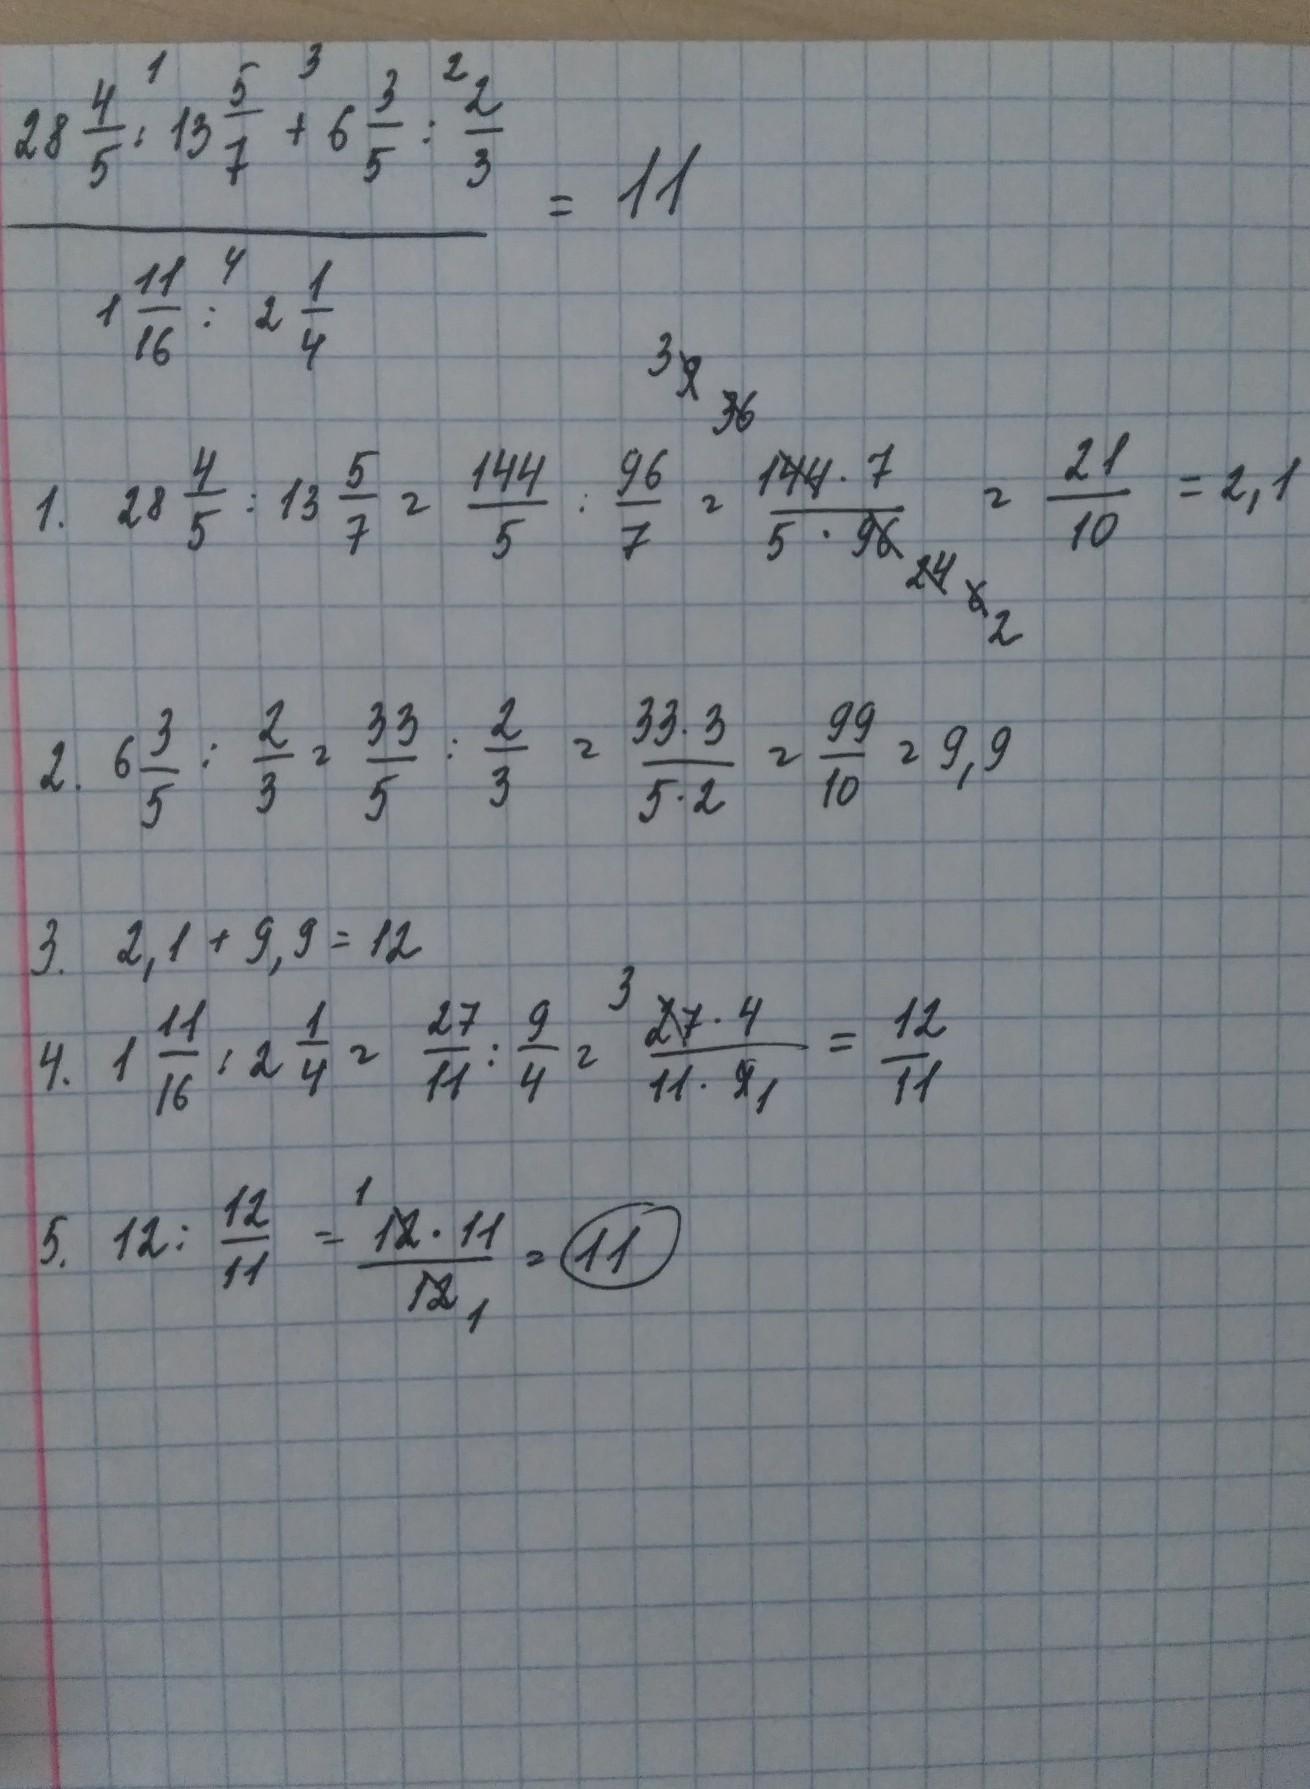 28 4/5 : 13 5/7 + 6 3/5 : 2/3 = 11
1 3 2
1 11/16 : 2 1/4
4
1. 28 4/5 : 13 5/7 = 144/5 : 96/7 = 144 · 7 / 5 · 96 = 21/10 = 2,1
3 9 36
24 6 2
2. 6 3/5 : 2/3 = 33/5 : 2/3 = 33 · 3 / 5 · 2 = 99/10 = 9,9
3. 2,1 + 9,9 = 12
4. 1 11/16 : 2 1/4 = 27/11 : 9/4 = 3 27 · 4 / 11 · 9 1 = 12/11
5. 12 : 12/11 = 1 12 · 11 / 12 1 = 11